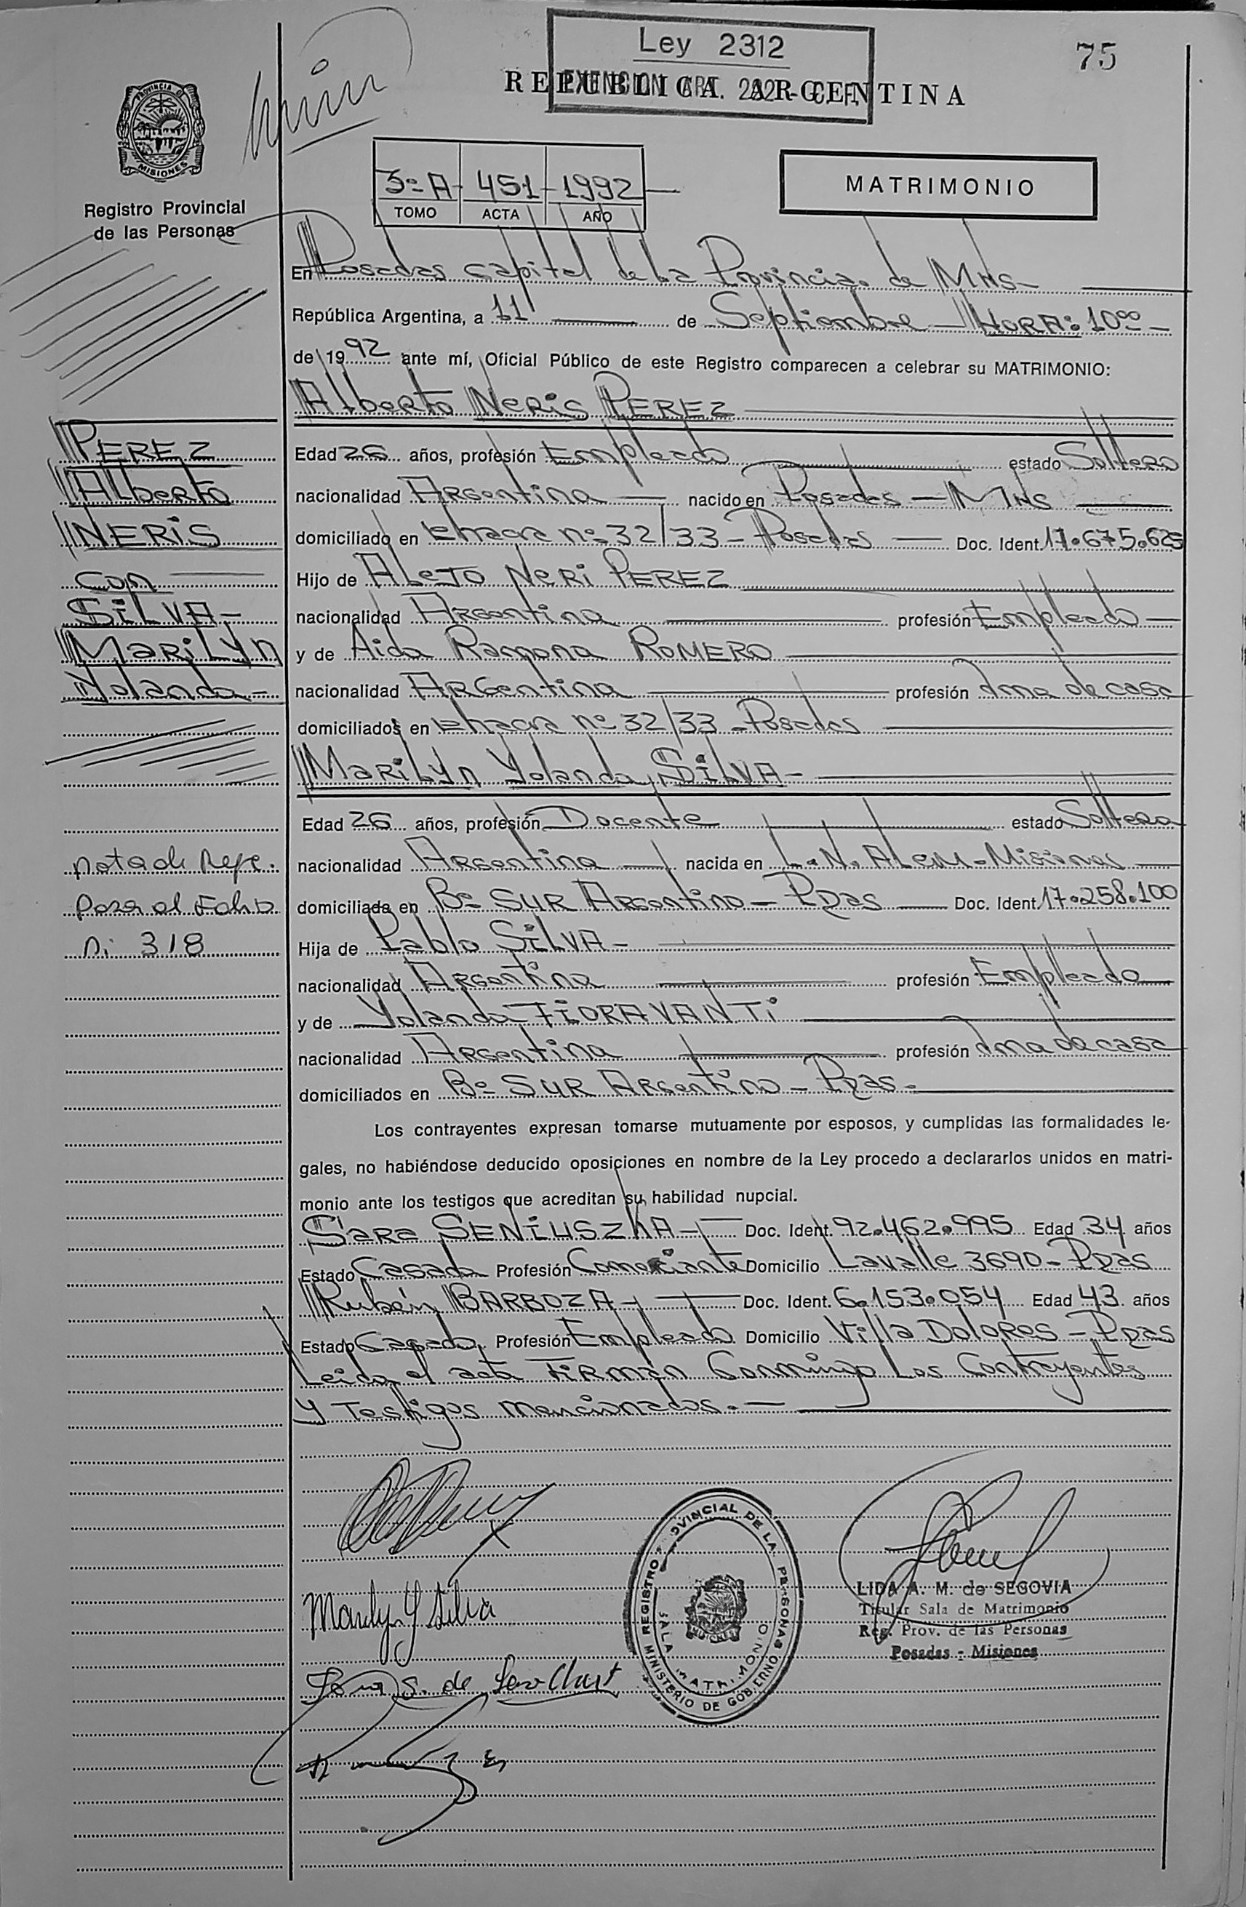 Ley 2312
75
REPUBLICA ARGENTINA
PROVINCIA DE MISIONES
3º A 451 1992
TOMO ACTA AÑO
MATRIMONIO
Registro Provincial
de las Personas
En Posadas Capital de La Provincia de Mns-
República Argentina, a 11 de Septiembre - HORA: 10oo -
de 1992 ante mí, Oficial Público de este Registro comparecen a celebrar su MATRIMONIO:
Alberto Neris PEREZ
PEREZ
Alberto
NERIS
con
SILVA-
MARILYN
Yolanda-
Edad 26 años, profesión Empleado estado Soltero
nacionalidad Argentina nacido en Posadas - Mns
domiciliado en chacra nº 32/33 - Posadas Doc. Ident. 17.675.625
Hijo de ALeJO NeRi PEREZ
nacionalidad Argentina profesión Empleado
y de Aida Ramona ROMERO
nacionalidad Argentina profesión Ama de casa
domiciliados en chacra nº 32/33 - Posadas
Marilyn Yolanda SILVA-
Edad 26 años, profesión Docente estado Soltera
nacionalidad Argentina nacida en L.N. ALem - Misiones
domiciliada en Bº SUR Argentino - Pdas Doc. Ident. 17.258.100
Nota de Refe.
para al Folio
Nº 318
Hija de Pablo SILVA-
nacionalidad Argentina profesión Empleado
y de Yolanda FIORAVANTI
nacionalidad Argentina profesión Ama de casa
domiciliados en Bº SUR Argentino - Pdas.
Los contrayentes expresan tomarse mutuamente por esposos, y cumplidas las formalidades le-
gales, no habiéndose deducido oposiciones en nombre de la Ley procedo a declararlos unidos en matri-
monio ante los testigos que acreditan su habilidad nupcial.
Sara SENIUSZKA - Doc. Ident. 92.462.995 Edad 34 años
Estado Casada Profesión Comerciante Domicilio Lavalle 3690 - Pdas
Rubén BARBOZA - Doc. Ident. 6.153.054 Edad 43 años
Estado Casado Profesión Empleado Domicilio Villa DoLores - Pdas
Leida el acta Firman Conmingo Los Contrayentes
y Testigos mencionados. -
Marilyn Y Silva
REGISTRO PROVINCIAL DE LAS PERSONAS
SALA MATRIMONIO
MINISTERIO DE GOBIERNO
LIDA A. M. de SEGOVIA
Titular Sala de Matrimonio
Reg. Prov. de las Personas
Posadas - Misiones